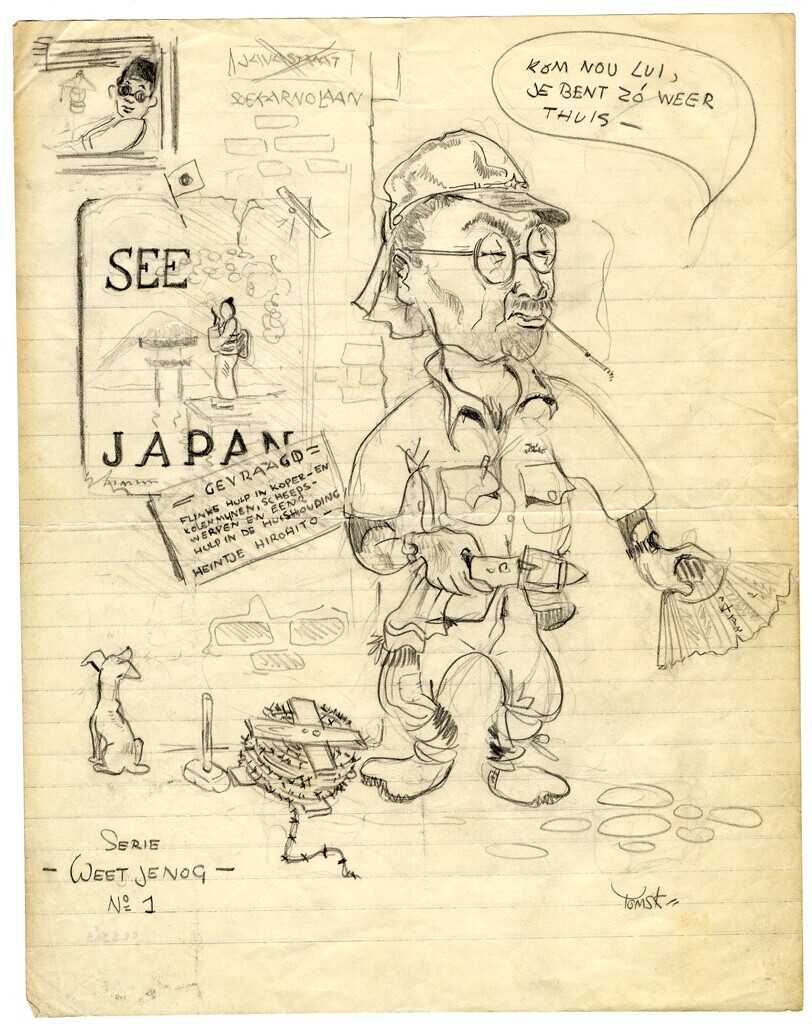 JAVASTRAAT
SOEKARNOLAAN
KOM NOU LUI,
JE BENT ZÓ WEER
THUIS —
SEE
JAPAN
= GEVRAAGD =
FLINKE HULP IN KOPER- EN
KOLENMIJNEN, SCHEEPS-
WERVEN EN EENR
HULP IN DE HUISHOUDING
HEINTJE HIROHITO —
SERIE
- WEET JE NOG -
Nº 1
TOMSK =